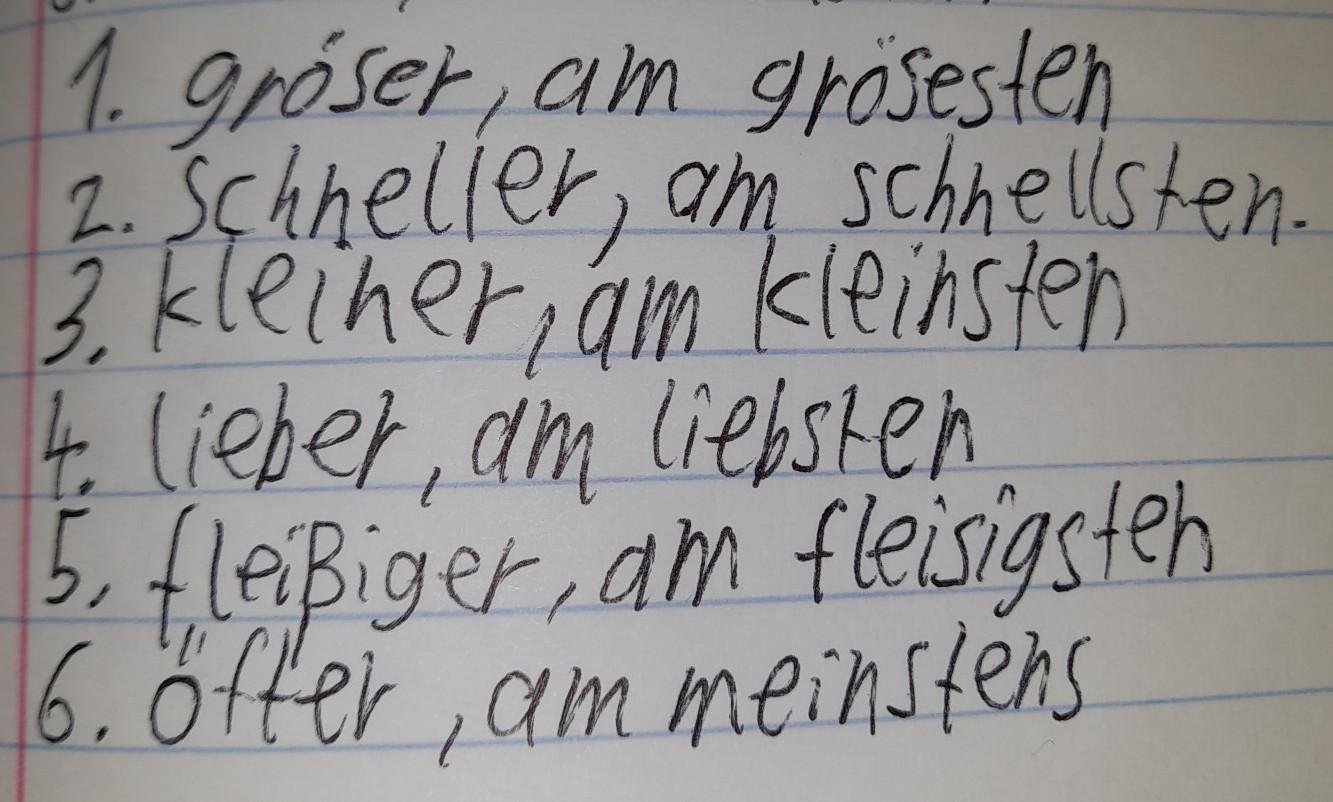 1. gróser, am grösesten
2. Schneller, am schnellsten.
3. kleiner, am kleinsten
4. lieber, am liebsten
5. fleißiger, am fleisigsten
6. öfter, am meinstens